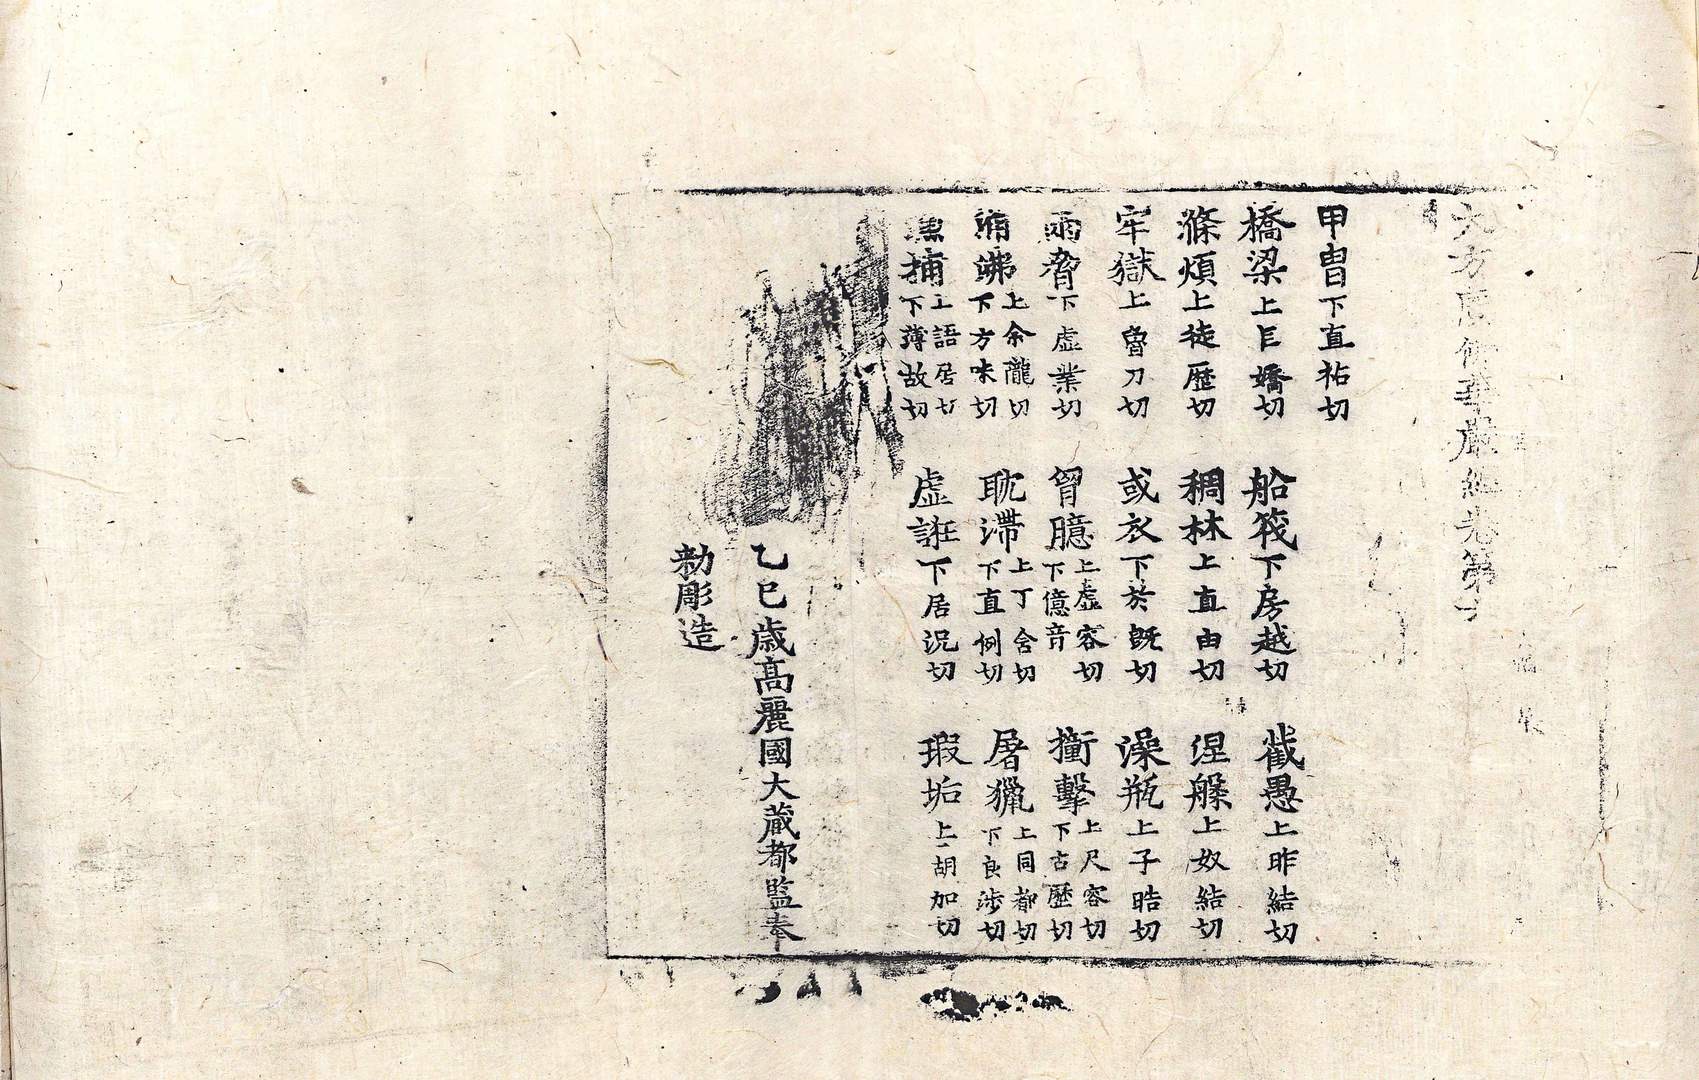 大方廣佛華嚴經卷第
甲冑下直祐切
橋梁上巨嬌切 船筏下房越切 嶻愚上昨結切
滌煩上徒歷切 稠林上直由切 涅槃上奴結切
牢獄上魯刀切 或衣下於旣切 澡甁上子晧切
兩脅下虛業切 胷臆上虛容切下億音 衝擊上尺容切下古歷切
涌沸上余隴切下方味切 耽滯上丁含切下直例切 屠獵上同都切下良涉切
捕上語居切下薄故切 虛誑下居況切 瑕垢上胡加切
乙巳歲高麗國大藏都監奉
勑彫造